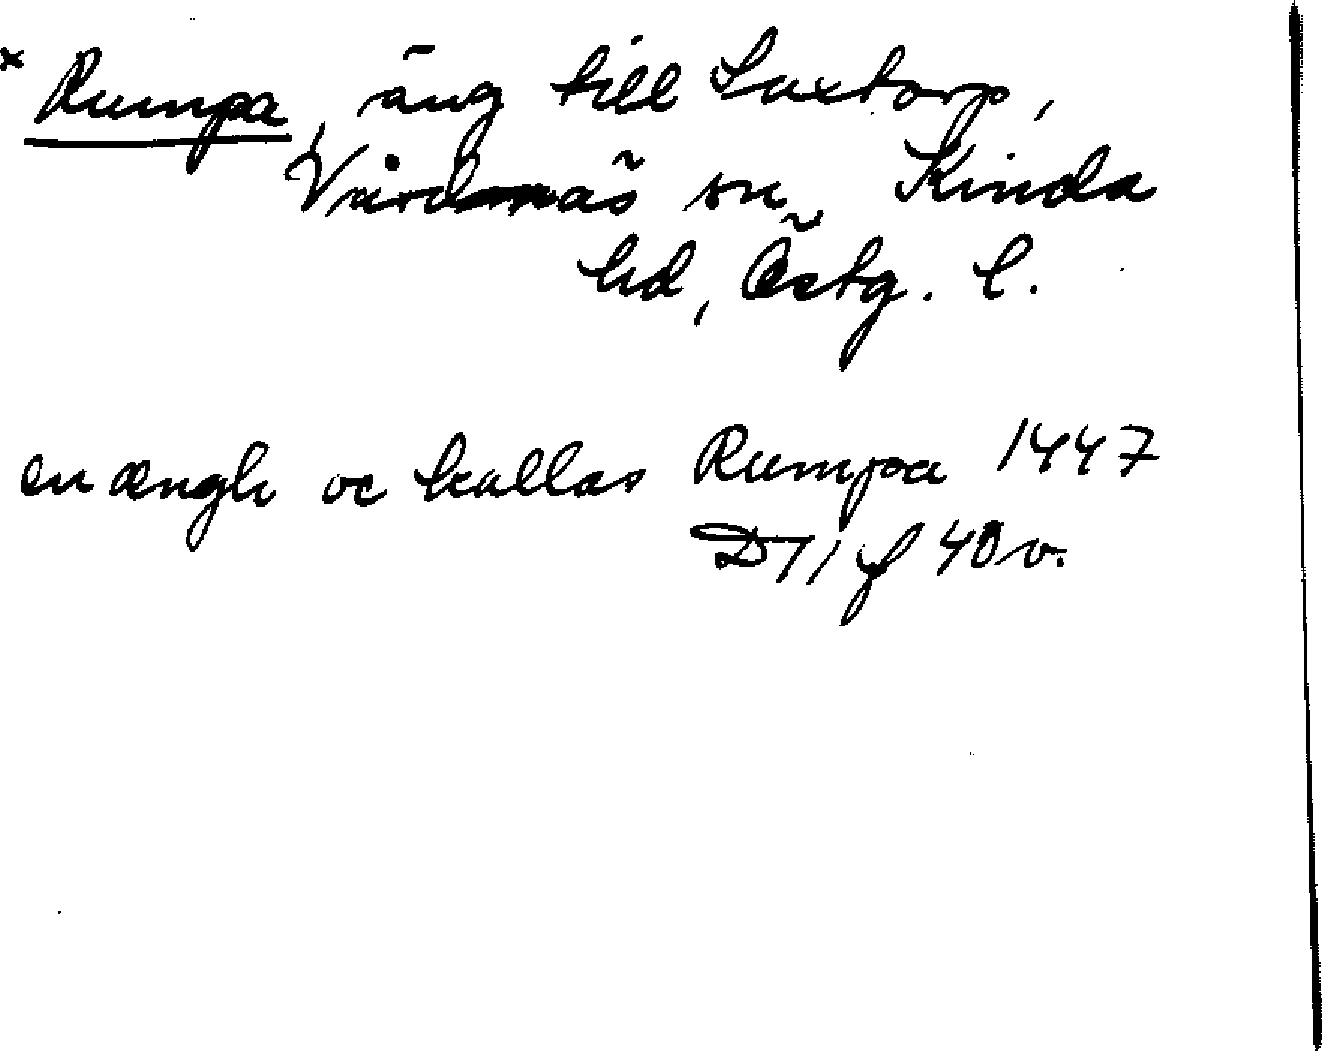 x Rumpa, äng till Saxtorp,
Vårdnäs sn, Kinda
hd, Östg. l.
en ængh oc kallas Rumpa 1447
D 11 f 40 v.